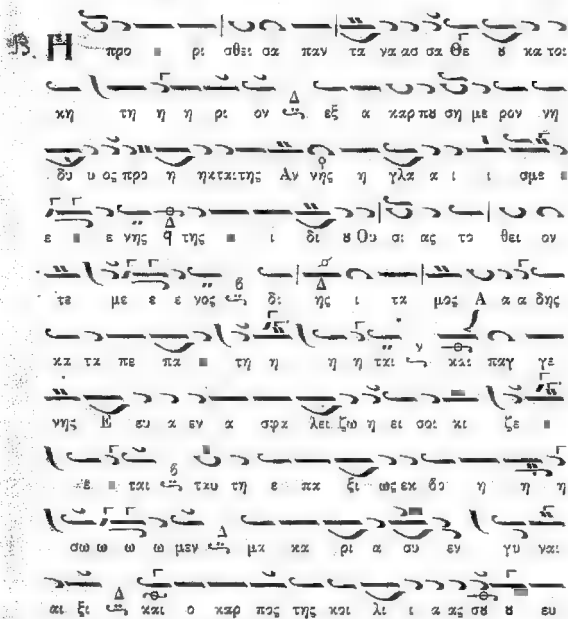 Η προ ε ρι σθει σα παν τα να ασ σα Θε ȣ κα τοι
κη τη η η ρι ον Δ εξ α καρ πȣ ση με ρον νη
δυ υ ος προ η ηκται της Αν νης η γλα α ι ι σμε ε
ε ε νης Δ της ι δι ȣ Θυ σι ας το θει ον
τε με ε ε νος δι Δ ης ι τα μος Α α α δης
κα τα πε πα τη η η η ται και παγ γε
νης Ε ευ α εν α σφα λει ζω η ει σοι κι ζε
ε ται ταυ τη ε πα ξι ως εκ βο η η η
σω ω ω ω μεν Δ μα κα ρι α συ εν γυ ναι
αι ξι Δ και ο καρ πος της κοι λι ι α ας σȣ ȣ ευ